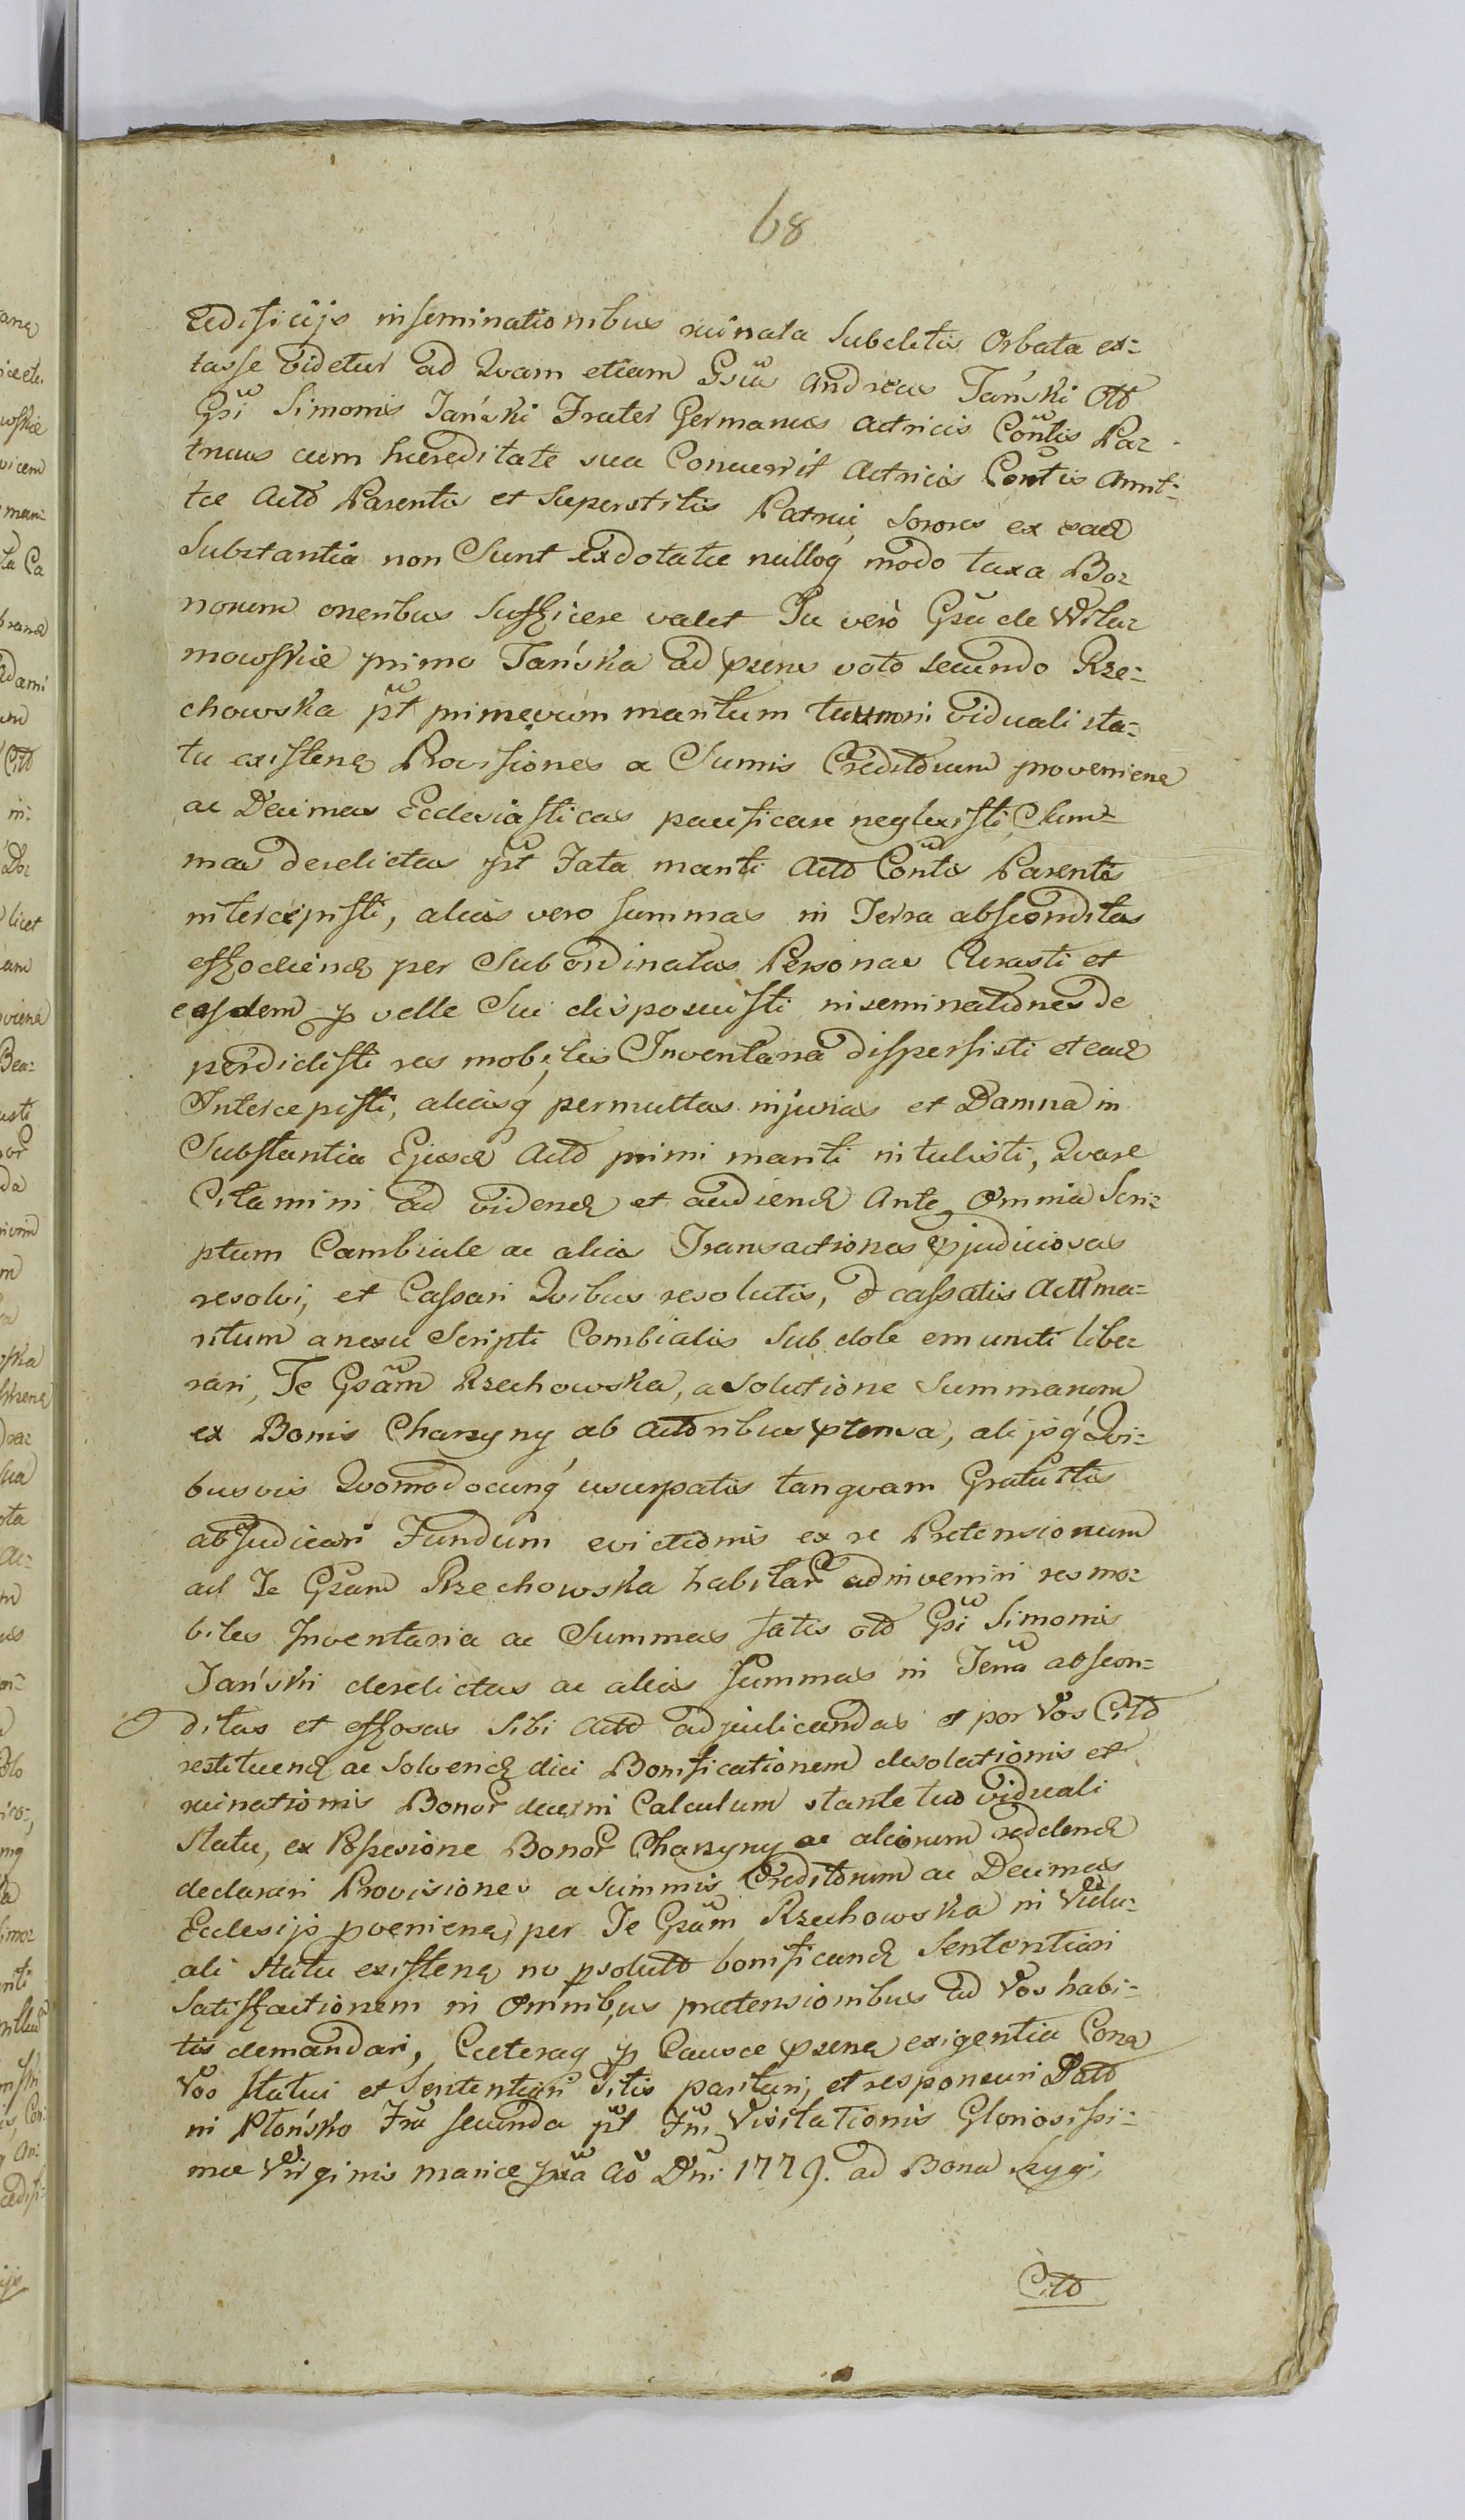 68
ædificijs inseminationibus ruinata Subditis Orbata ex=
tasse videtur ad Qvam etiam Gsũs Andreas Jański Olĩ
Gsĩ Simonis Jański Frater Germanus Actricis Cõntis Pa=
truus cum hæreditate sua Concurrit Actricis Contis Amit=
tæ Actõ Parentis et Superstitis Patrui Sorores ex ead
Substantia non Sunt exdotatæ nulloq modo taxa Bo=
norum oneribus Sufficere valet Tu verò Gsã de Wila=
mowskie primo Jańska ad psens voto secundo Rze=
chowska pt primævum maritum tuum in viduali sta=
tu existens Provisiones a Sumis Creditorum provenienq
ac Decimas Ecclesiasticas pacificare neglexisti, Sum=
mas derelictas pt Fata mariti Actõ Cõntis Parentis
intercepisti, alias vero summas in Terra absconditas
effodiend per Subordinatas Personas Curasti et
easdem p velle Sui disposuisti inseminationes de
perdidisti res mobiles Inventaria dispersisti et ead
Intercepisti, aliasq permultas injurias et Damna in
Substantia Ejusd Actõ primi mariti intulisti, Qvare
Citamini ad vidend et audiend Ante Omnia Scri=
ptum Cambiale ac alias Transactiones pjudiciosas
resolvi, et Cassari Qvibus resolutis, & cassatis Actt ma=
ritum a nexu Scripti Combialis Sub dole emuniti libe=
rari, Te Gsãm Rzechowska, a solutione Summarum
ex Bonis Charzyny ab Actoribus ptensa, alijsq Qvi=
busvis Qvomodocunq usurpatis tanqvam Gratuitis
abjudicari Fundum evictionis ex re Pretensionum
ad Te Gsam Rzechowska habitar adinveniri res mo=
biles Inventaria ac Summas fatis olĩ Gsĩ Simonis
Jański derelictas ac alias Summas in Terra abscon=
ditas et effosas Sibi Actõ adjudicandas et per Vos Citõ
restituend ac Solvend dici Bonificationem desolationis et
ruinationis Bonor decerni Calculum stante tuo viduali
Statu, ex Possesione Bonor Charzyny ac aliorum reddend
declarari Provisiones a summis Creditorum ac Decimas
Ecclesijs pvenienq per Te Gsãm Rzechowska in Vidu=
ali statu existenq no psolutõ bonificand Sententiari
Satisfactionem in Omnibus prætensionibus ad Vos habi=
tis demandari, Cæteraq p Causæ psenq exigentia Cona
Vos statui et Sententiari Sitis parituri, et responsuri Datõ
in Płońsko Fria secunda pt Fm Visitationis Gloriosissi=
mæ Virginis mariæ pxa Aõ Dñi 1779. ad Bona Srygi
Citõ